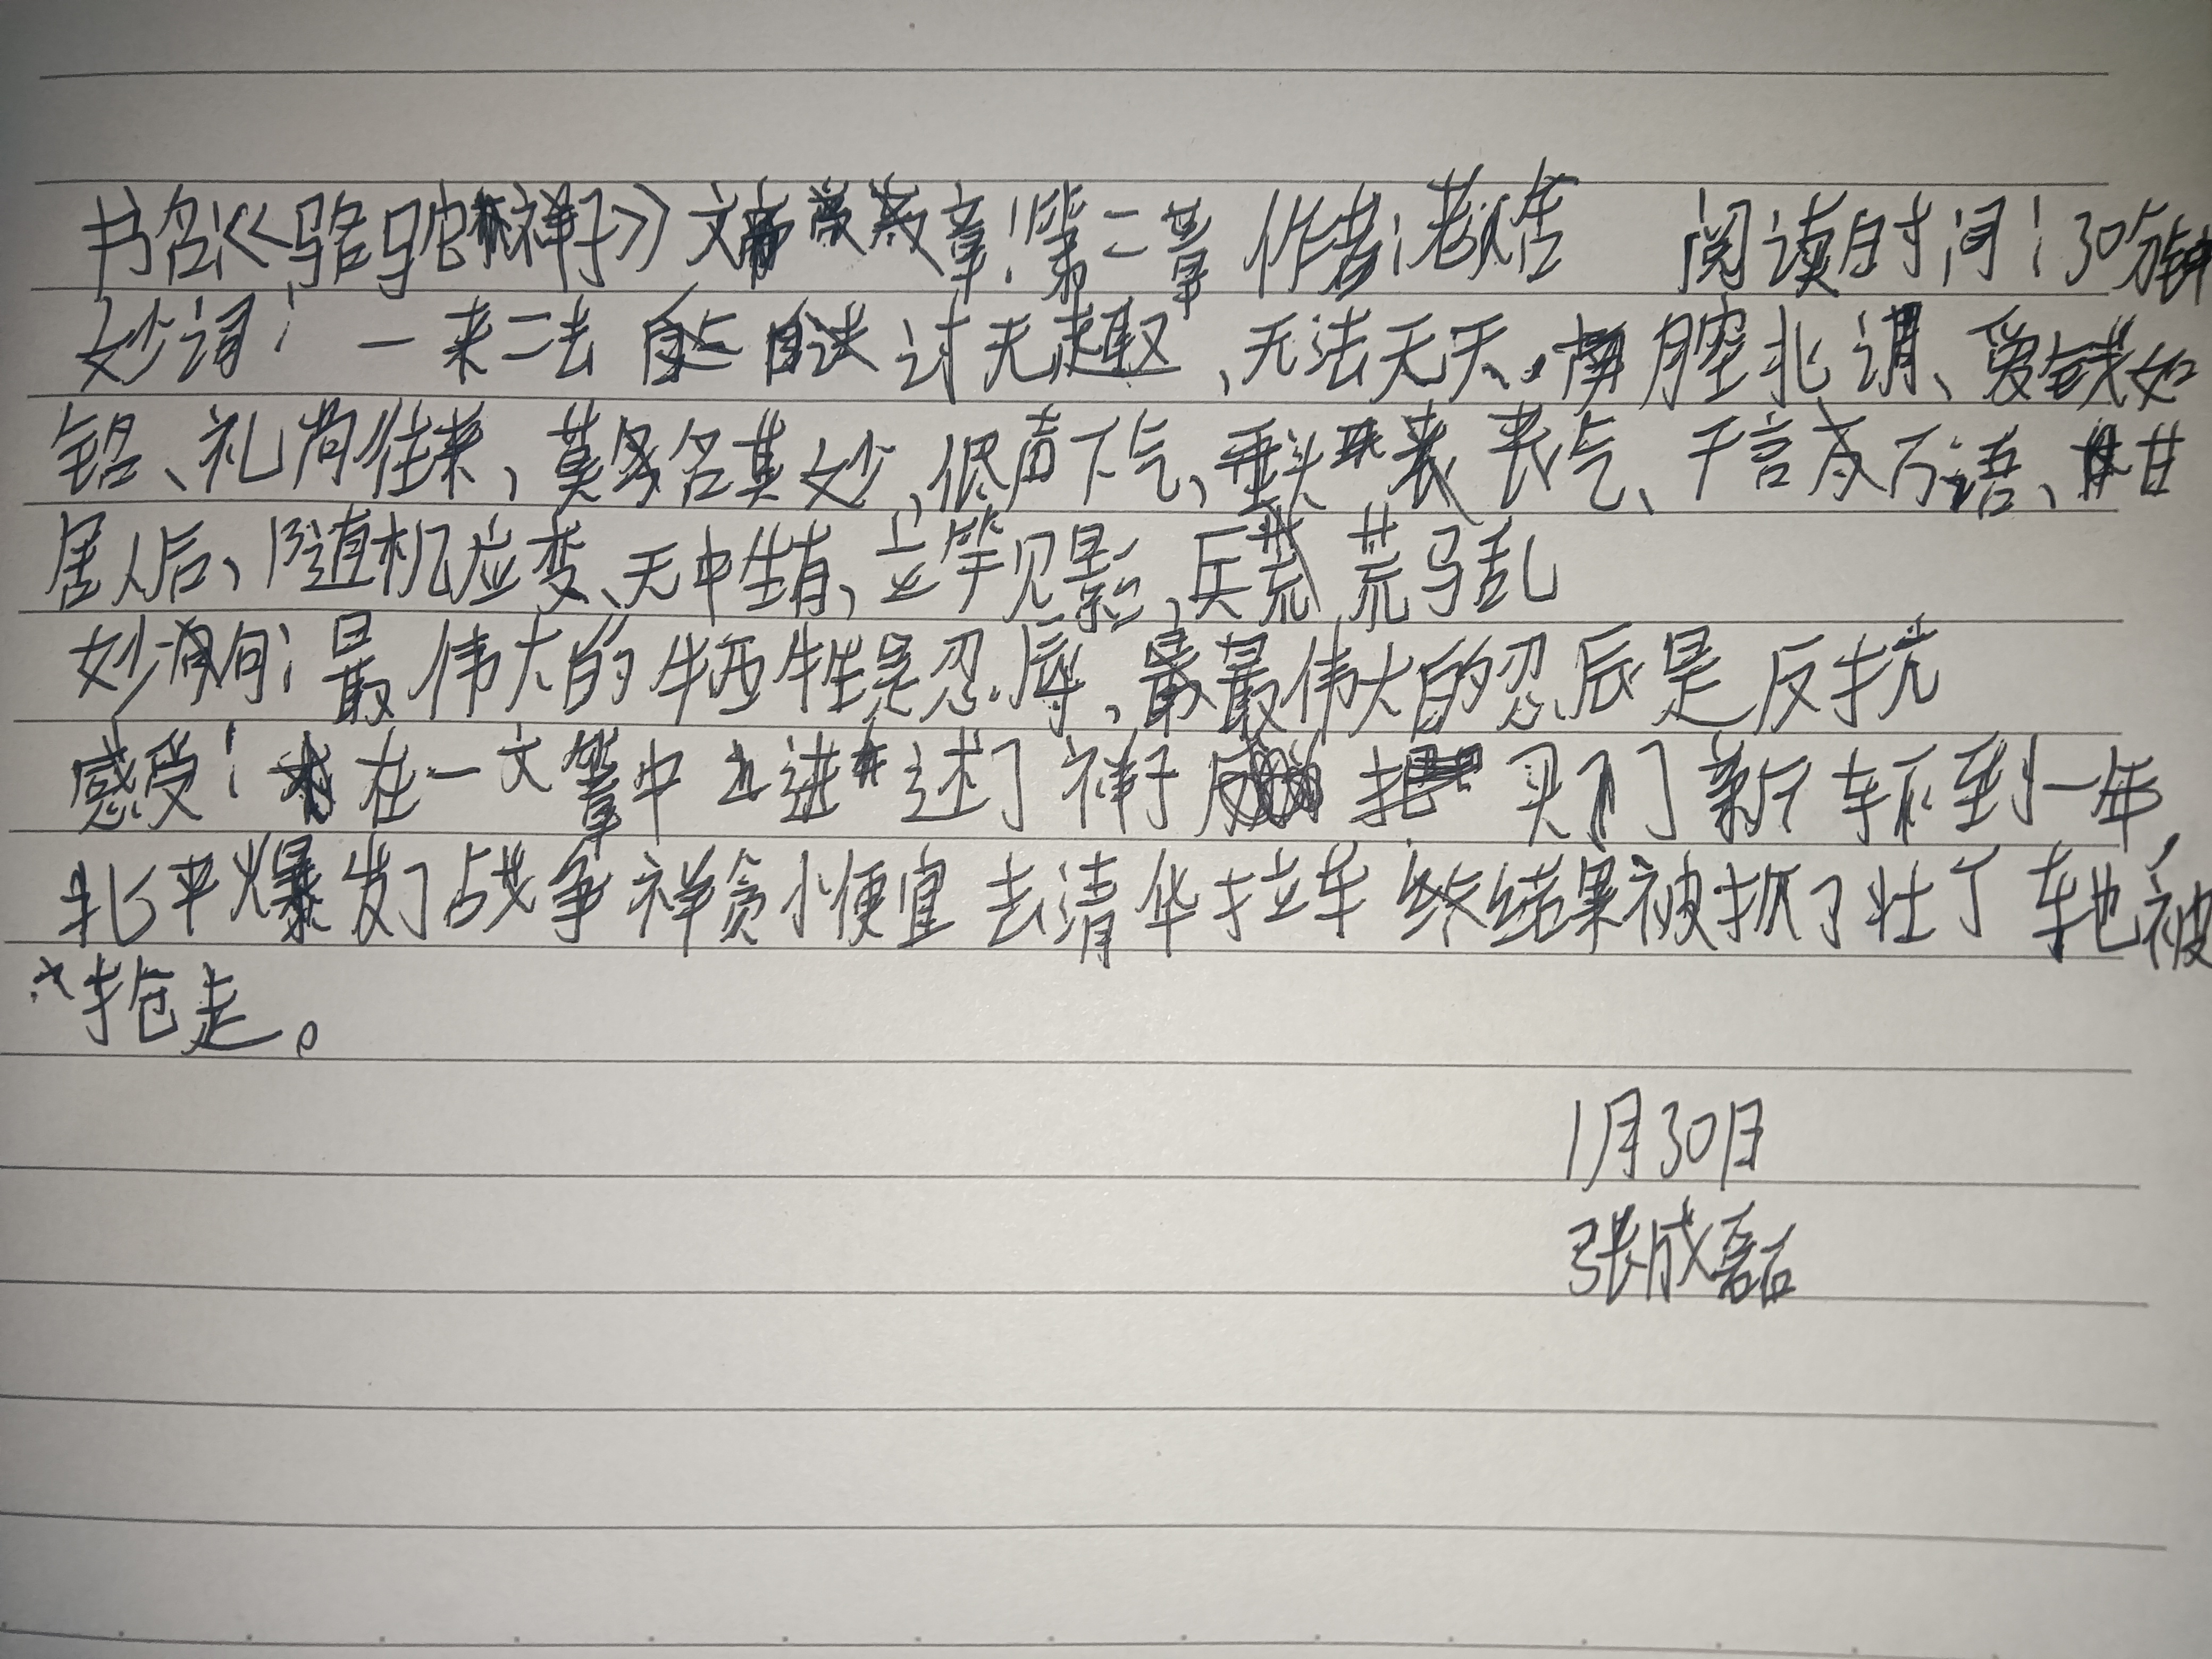 书名:《骆驼祥子》文章:第二章 作者:老舍 阅读时间:30分钟
妙词:一来二去 自讨无趣、无法无天、南腔北调、爱钱如
铭、礼尚往来、莫名其妙、低声下气、垂头丧气、千言万语、甘
居人后、随机应变、无中生有、立竿见影、兵荒马乱
妙句:最伟大的牺牲是忍辱,最伟大的忍辰是反抗
感受:在一文章中 进述了祥子 买了新车不到一年,
北平爆发了战争祥贪小便宜去清华拉车 结果被抓了壮丁 车也被
抢走。
1月30日
张成磊